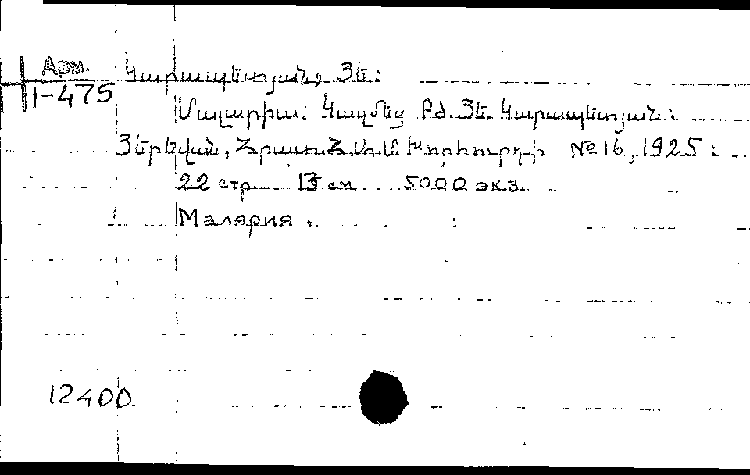 Арм. Կարապետյան, Յե:
1-475
Մալարիա: Կազմեց Բժ. Յե. Կարապետյան:
Յերեվան, Հրատ. Խորհուրդի № 16, 1925:
22 стр 13 см 5000 экз.
Малярия.
12400